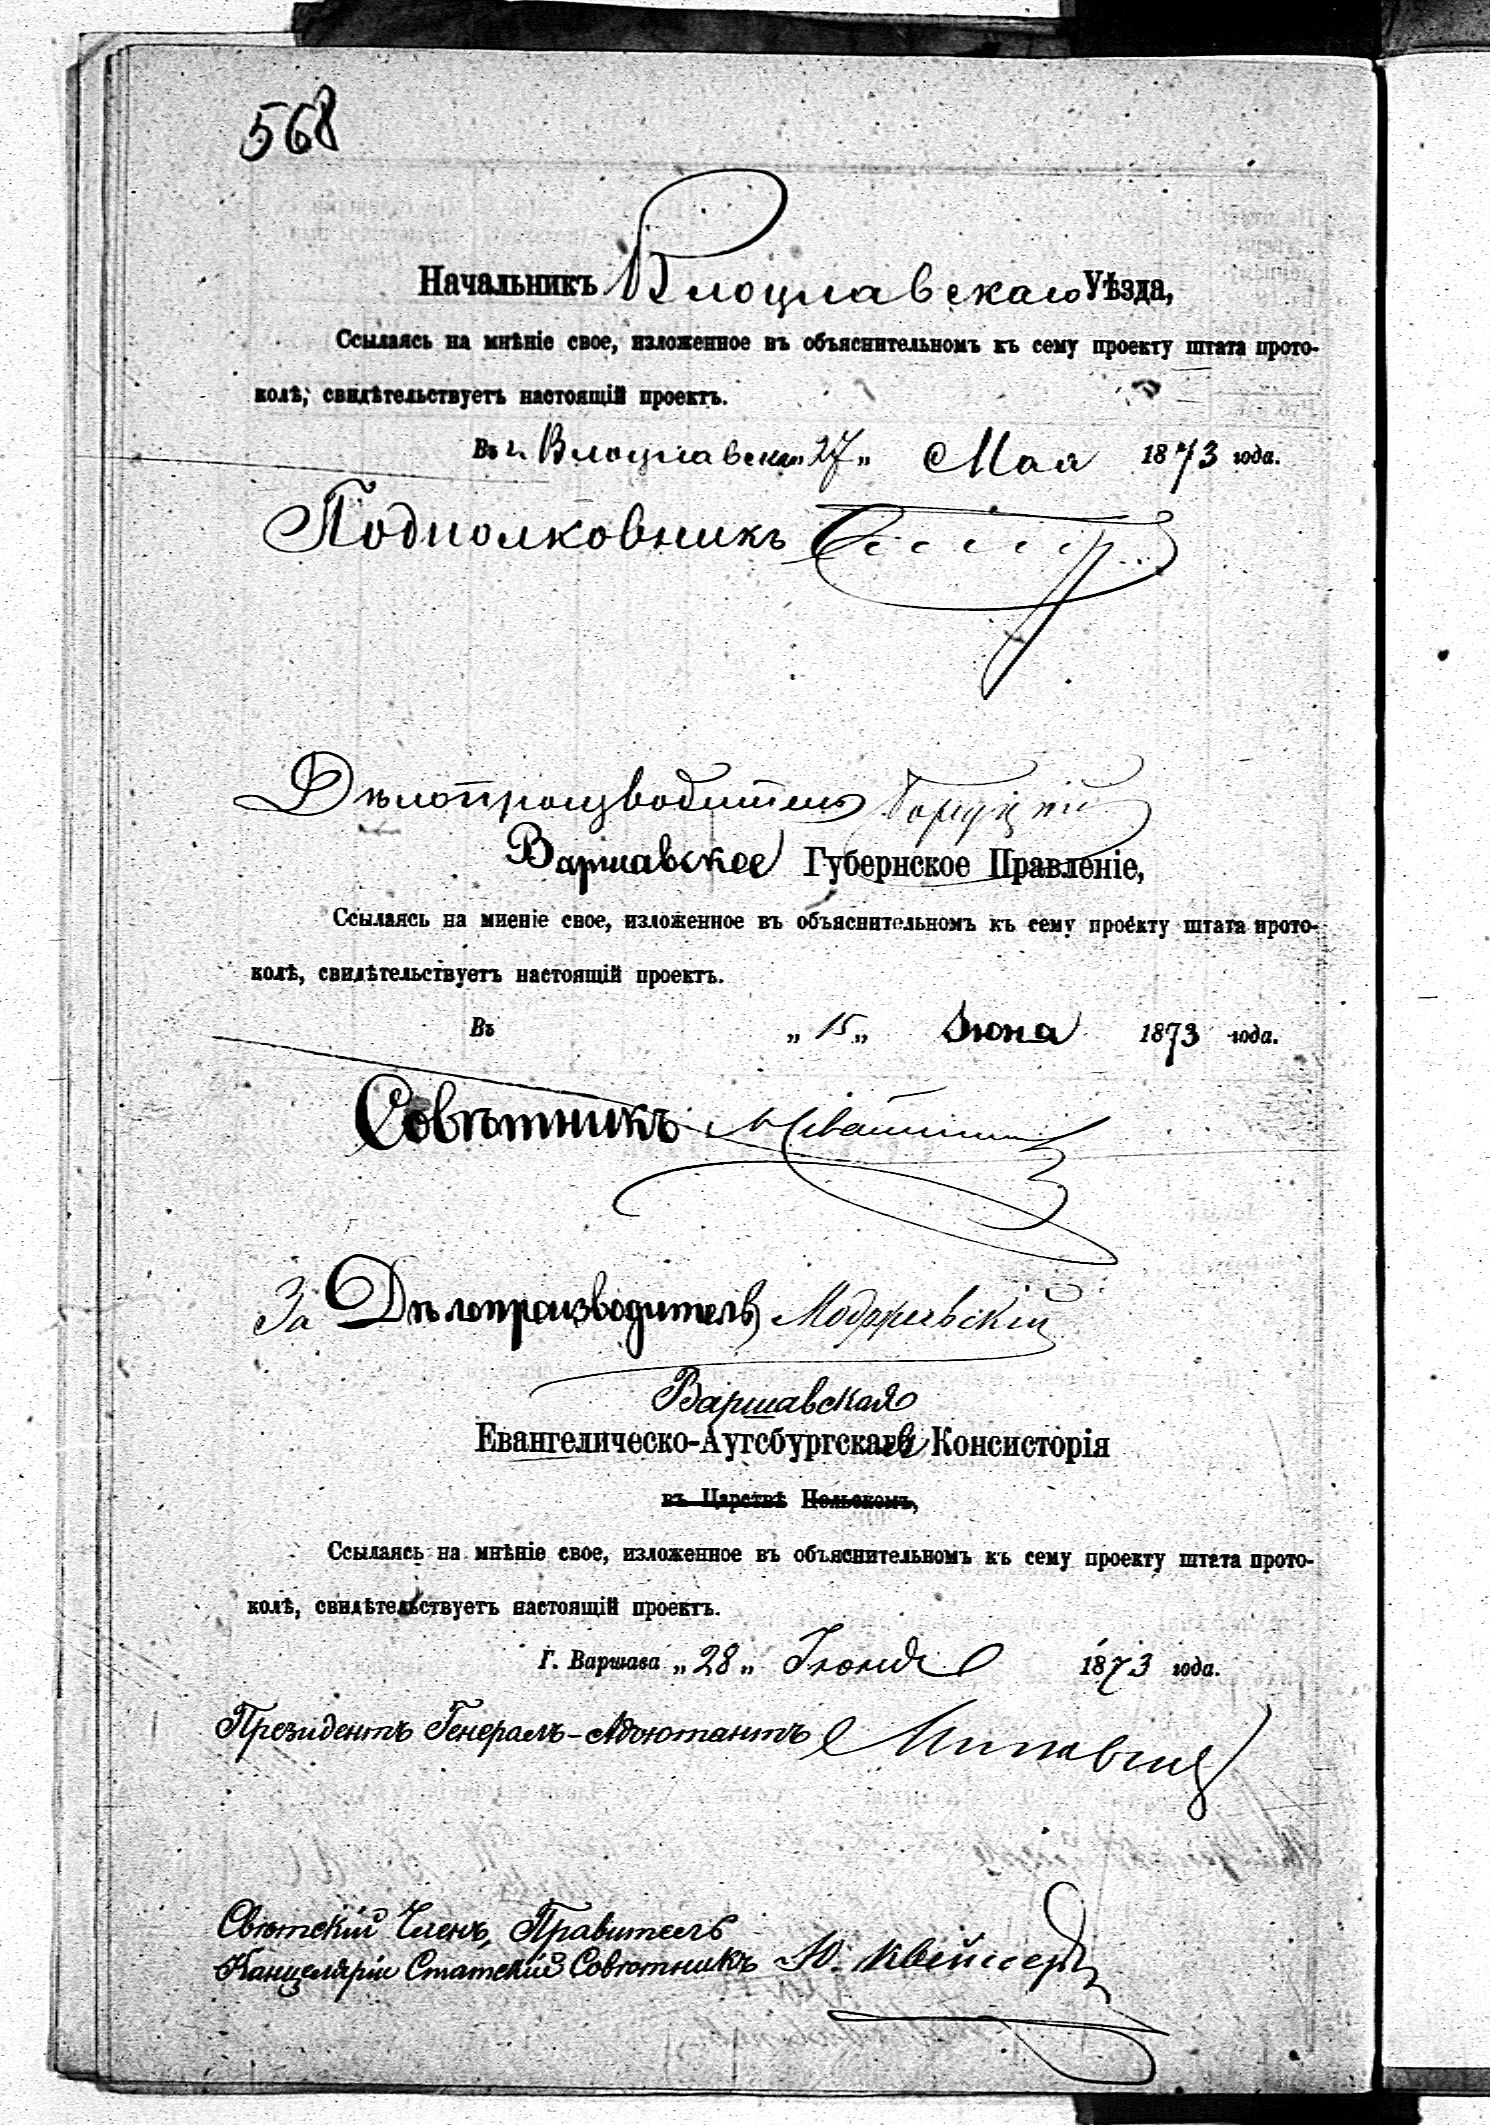 568
Начальникъ Влоцлавскаго Уѣзда,
Ссылаясь на мнѣніе свое, изложенное въ объяснительномъ къ сему проекту штата прото-
колѣ, свидѣтельствуетъ настоящій проектъ.
Въ г. Влоцлавскѣ „27„ Мая 1873 года.
Подполковникъ
Дѣлопроизводитель
Варшавское Губернское Правленіе,
Ссылаясь на миеніе свое, изложенное въ объяснительномъ къ сему проекту штата прото-
колѣ, свидѣтельствуетъ настоящій проектъ.
Въ „15„ Іюня 1873 года.
Совѣтникъ
За Дѣлопроизводитель Модржевскій
Варшавская
Евангелическо-Аугсбургская Консисторія
въ Царствѣ Польскомъ,
Ссылаясь на мнѣніе свое, изложенное въ объяснительномъ къ сему проекту штата прото-
колѣ, свидѣтельствуетъ настоящій проектъ.
Г. Варшава „28„ Іюня 1873 года.
Президентъ Генералъ-Адъютантъ
Свѣтскій Членъ, Правитель
Канцеляріи Статскій Совѣтникъ